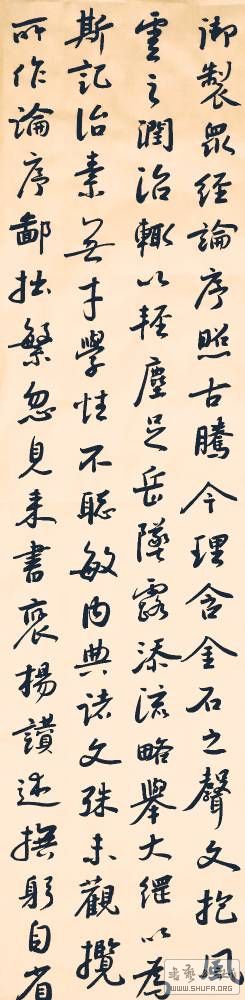 御製眾經論序照古騰今理含金石之聲文抱風
雲之潤治輒以輕塵足岳墜露添流略舉大綱以為
斯記治素無才學性不聰敏內典諸文殊未觀攬
所作論序鄙拙繁忽見来書褒揚讚述撫躬自省
WWW.SHUFA.ORG